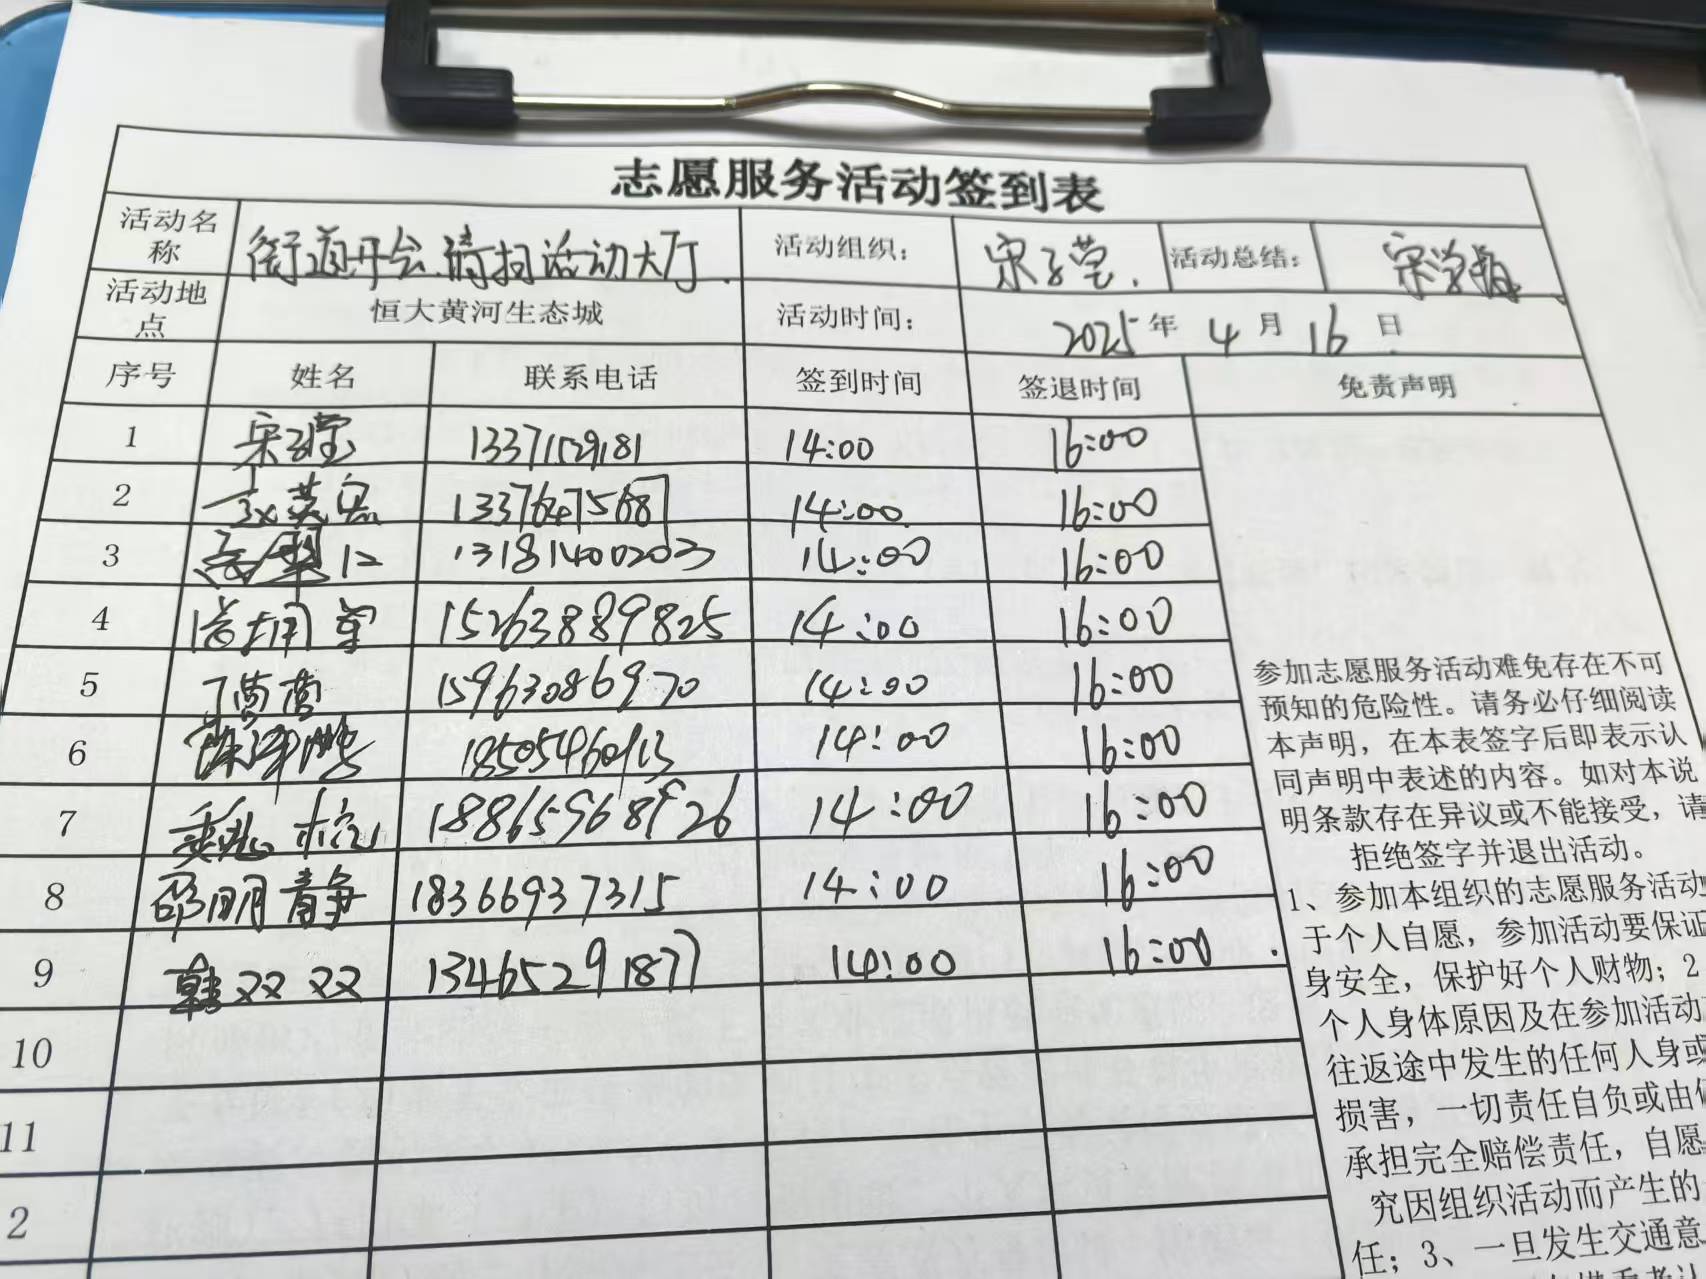 志愿服务活动签到表
活动名称 街道开会.请扫活动大厅. 活动组织: 宋子莹. 活动总结: 宋
活动地点 恒大黄河生态城 活动时间: 2025年 4月 16日
序号 姓名 联系电话 签到时间 签退时间 免责声明
1 宋子莹 13371529181 14:00 16:00
2 英 13376475687 14:00 16:00
3 13181400203 14:00 16:00
4 15263889825 14:00 16:00
5 丁茵茵 15963086970 14:00 16:00
6 18505460913 14:00 16:00
7 18865968926 14:00 16:00
8 邵明静 18366937315 14:00 16:00
9 韩双双 13465291877 14:00 16:00
10
11
2
参加志愿服务活动难免存在不可
预知的危险性。请务必仔细阅读
本声明，在本表签字后即表示认
同声明中表述的内容。如对本说
明条款存在异议或不能接受，请
拒绝签字并退出活动。
1、参加本组织的志愿服务活动
于个人自愿，参加活动要保证
身安全，保护好个人财物；2
个人身体原因及在参加活动
往返途中发生的任何人身或
损害，一切责任自负或由
承担完全赔偿责任，自愿
究因组织活动而产生的
任；3、一旦发生交通意